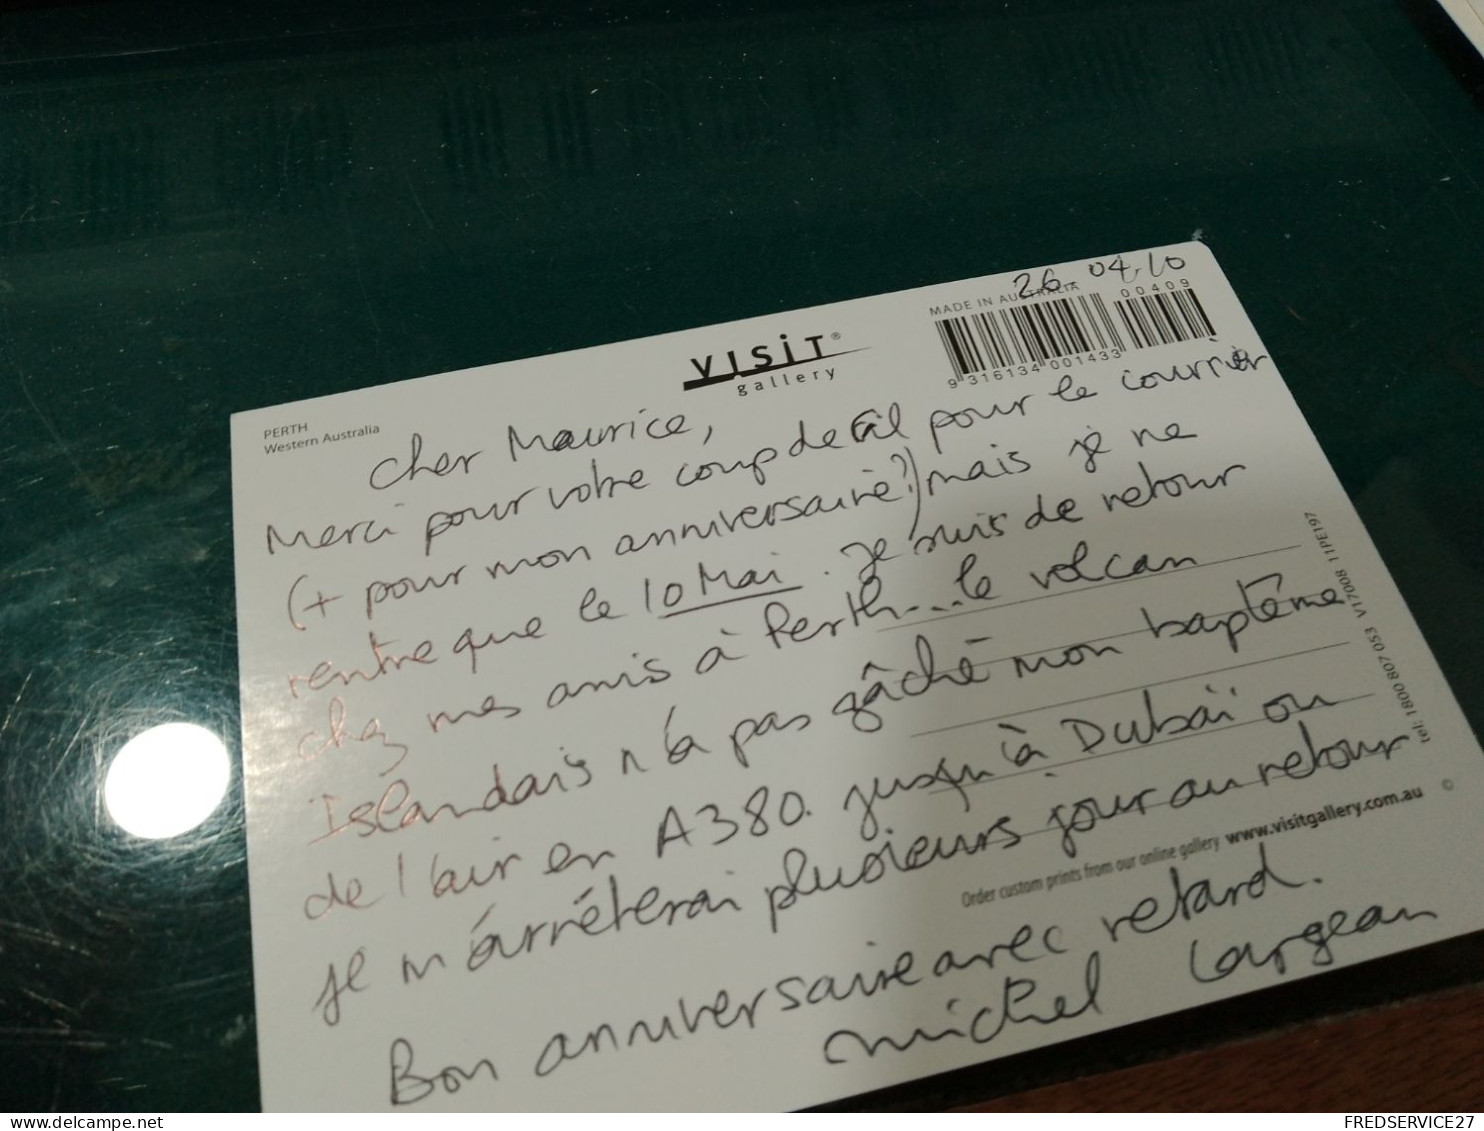 26.04.10
MADE IN AUSTRALIA
00409
9 316134 001433
VISIT®
gallery
PERTH
Western Australia
Cher Maurice,
Merci pour votre coup de fil pour le courrier
(+ pour mon anniversaire?) mais je ne
rentre que le 10 Mai. Je suis de retour
chez mes amis à Perth...le volcan
Islandais n'a pas gâché mon baptême
de l'air en A380. jusqu'à Dubaï ou
je m'arrêterai plusieurs jour au retour
Bon anniversaire avec retard.
Michel Largeau
Order custom prints from our online gallery www.visitgallery.com.au ©
tel: 1800 807 053 V17008 11PE197
delcampe.net
FREDSERVICE27